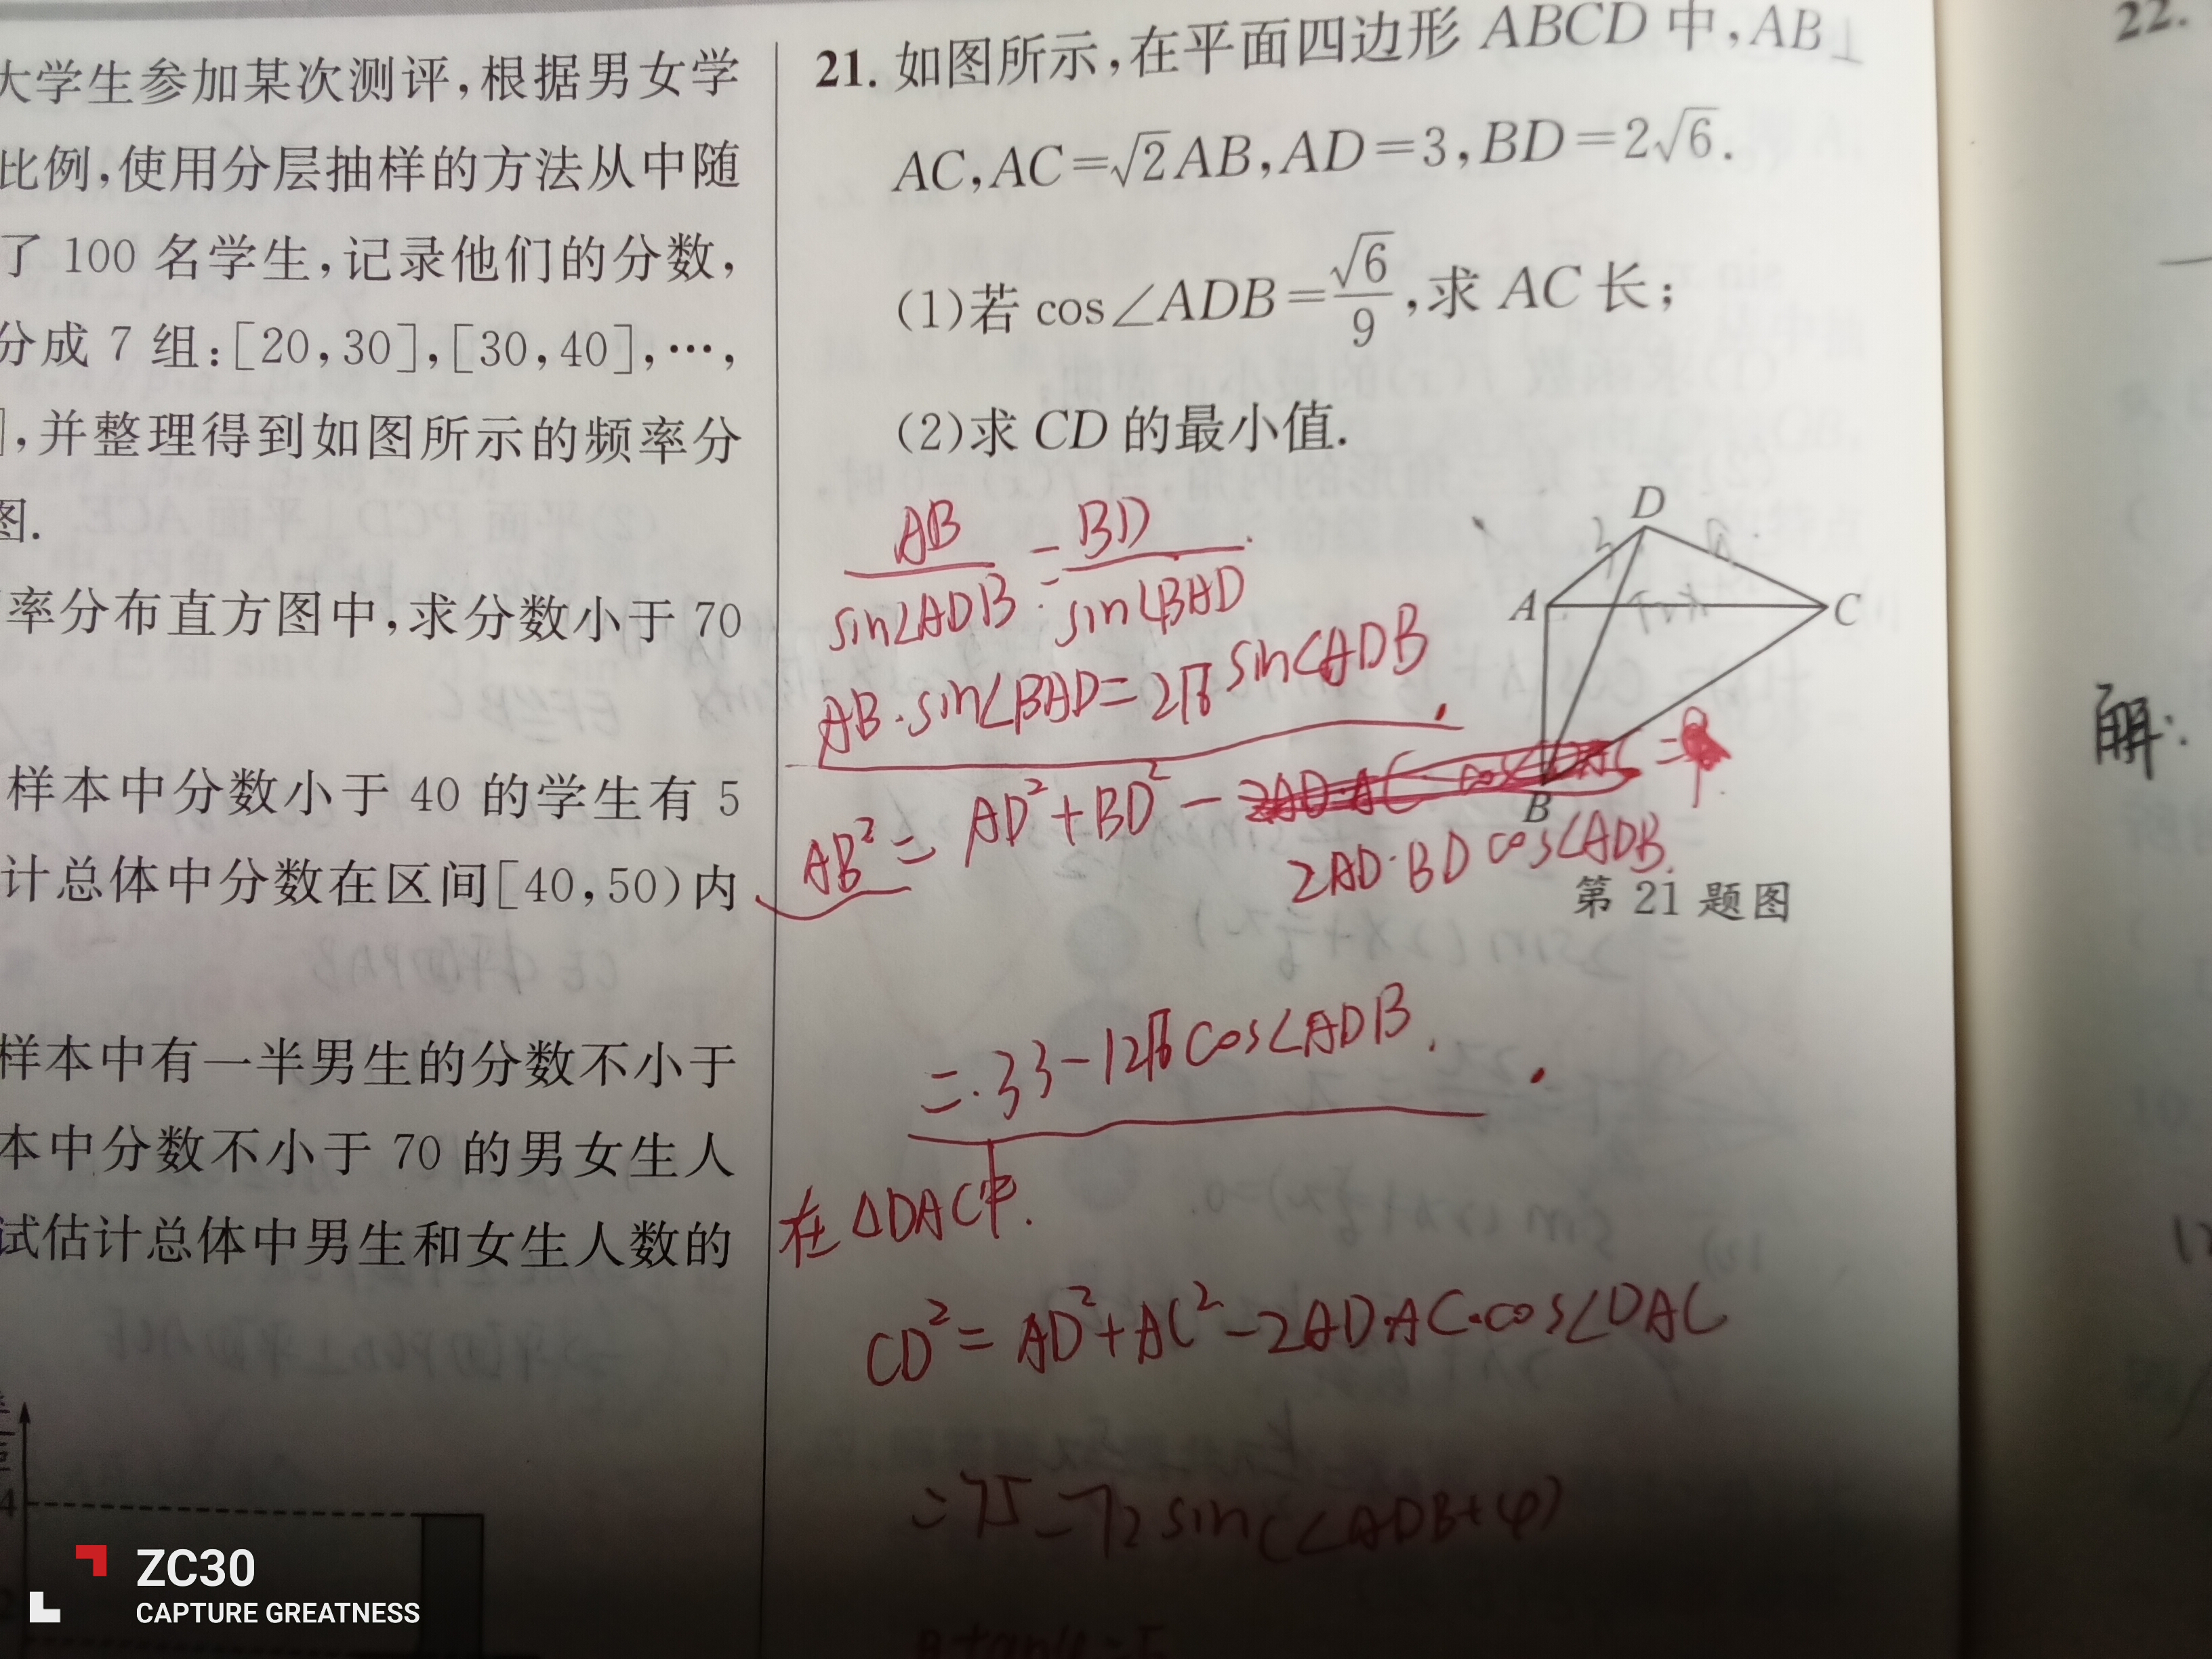 大学生参加某次测评,根据男女学
比例,使用分层抽样的方法从中随
了 100 名学生,记录他们的分数,
分成 7 组:[20,30],[30,40],…,
],并整理得到如图所示的频率分
图.
率分布直方图中,求分数小于 70
样本中分数小于 40 的学生有 5
计总体中分数在区间[40,50)内
样本中有一半男生的分数不小于
本中分数不小于 70 的男女生人
试估计总体中男生和女生人数的
4
21. 如图所示,在平面四边形 ABCD 中,AB⊥
AC,AC=√2AB,AD=3,BD=2√6.
(1)若 cos∠ADB=√6/9,求 AC 长;
(2)求 CD 的最小值.
D
A
C
B
第 21 题图
AB/sin∠ADB = BD/sin∠BAD
AB·sin∠BAD=2√6 sin∠ADB
AB²= AD²+BD²-
2AD·BD cos∠ADB.
=33-12√6cos∠ADB.
在△DAC中.
CD²= AD²+AC²-2AD·AC·cos∠DAC
=75-72sin(∠ADB+φ)
22.
解:
ZC30
CAPTURE GREATNESS